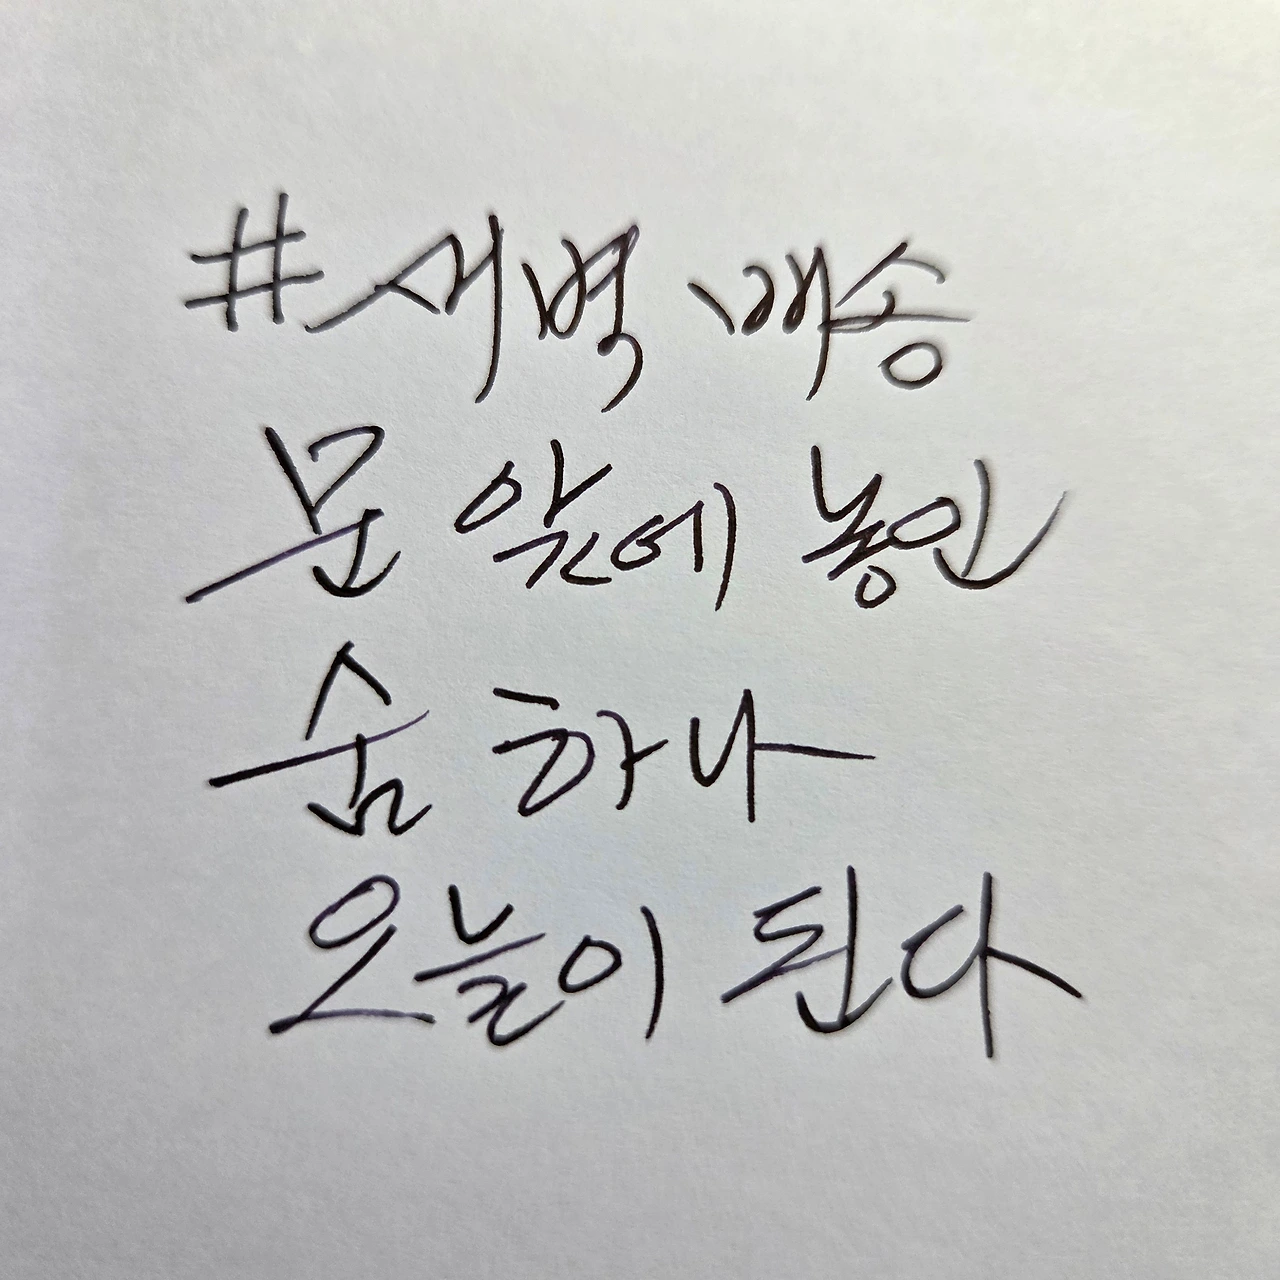 #새벽 배송
문 앞에 놓인
숨 하나
오늘이 된다